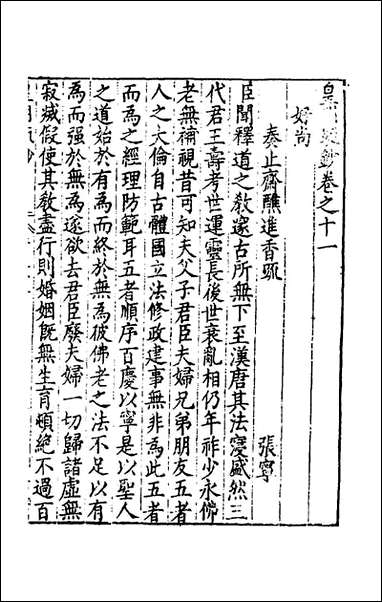 皇明疏鈔卷之十一
好尚
奏止齋醮進香疏
張寧
臣聞釋道之教邃古所無下至漢唐其法寖盛然三
代君王壽考世運靈長後世衰亂相仍年祚少永佛
老無補視昔可知夫父子君臣夫婦兄弟朋友五者
人之大倫自古體國立法修政建事無非為此五者
而為之經理防範耳五者順序百慶以寧是以聖人
之道始於有為而終於無為彼佛老之法不足以有
為而强於無為遂欲去君臣廢夫婦一切歸諸虛無
寂滅假使其教盡行則婚姻旣無生育頓絶不過百